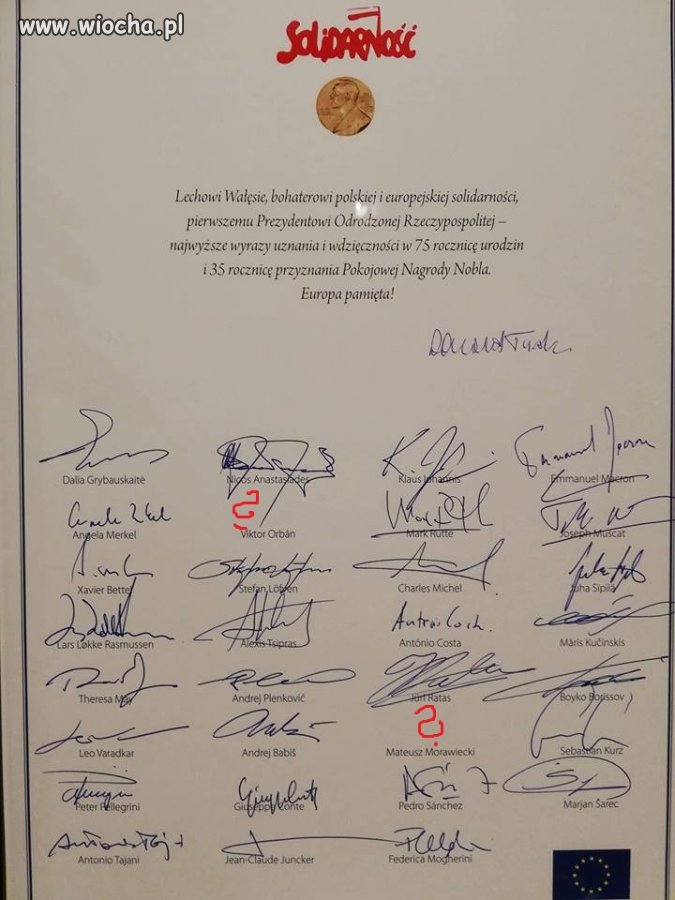 www.wiocha.pl
SOLIDARNOŚĆ
Lechowi Wałęsie, bohaterowi polskiej i europejskiej solidarności,
pierwszemu Prezydentowi Odrodzonej Rzeczypospolitej –
najwyższe wyrazy uznania i wdzięczności w 75 rocznicę urodzin
i 35 rocznicę przyznania Pokojowej Nagrody Nobla.
Europa pamięta!
Donald Tusk
Dalia Grybauskaitė Nicos Anastasiades Klaus Iohannis Emmanuel Macron
Angela Merkel Viktor Orbán Mark Rutte Joseph Muscat
Xavier Bettel Stefan Löfven Charles Michel Juha Sipilä
Lars Løkke Rasmussen Alexis Tsipras António Costa Māris Kučinskis
Theresa May Andrej Plenković Jüri Ratas Boyko Borissov
Leo Varadkar Andrej Babiš Mateusz Morawiecki Sebastian Kurz
Peter Pellegrini Giuseppe Conte Pedro Sánchez Marjan Šarec
Antonio Tajani Jean-Claude Juncker Federica Mogherini